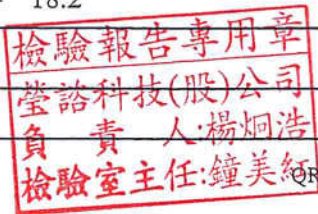 18.2
檢驗報告專用章
瑩諮科技(股)公司
負責人:楊炯浩
檢驗室主任:鐘美紅
QR